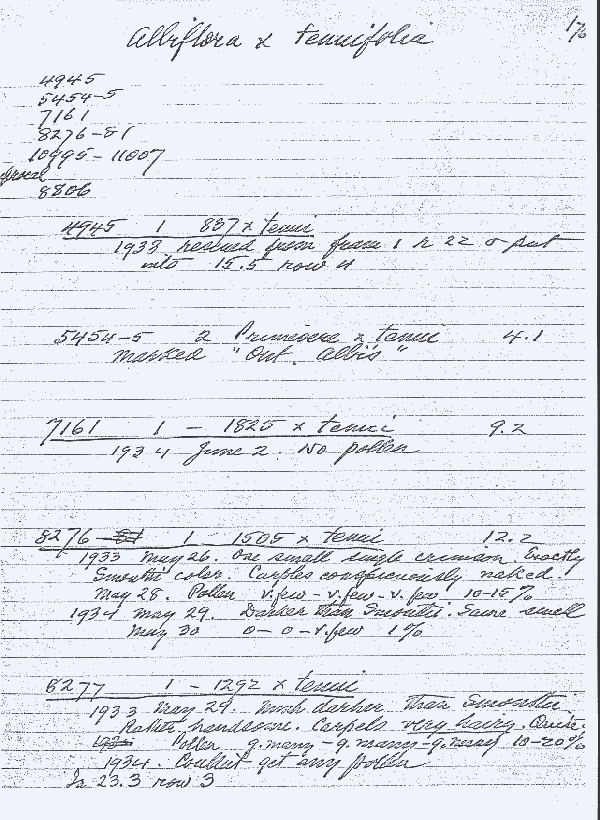 176
Albiflora x tenuifolia
4945
5454-5
7161
8276-81
10995-11007
8806
4945 1 837 x tenui
1933 received from farm 1 r 22 & put
into 15.5 row 4
5454-5 2 Primevere x tenui 4.1
marked "Out. albis"
7161 1 - 1825 x tenui 9.2
1934 June 2. No pollen
8276 1 1505 x tenui 12.2
1933 May 26. One small single crimson. Exactly
Smouthi color. Carples conspicuously naked.
May 28. Pollen v.few - v.few - v.few 10-15%
1934 May 29. Darker than Smouthi. Same smell
May 30 0-0-v.few 1%
8277 1 - 1292 x tenui
1933 May 29. Much darker than Smouthi.
Rather handsome. Carpels very hairy.
Pollen g.many - g.many - g.many 10-20%
1934. Couldn't get any pollen
In 23.3 row 3